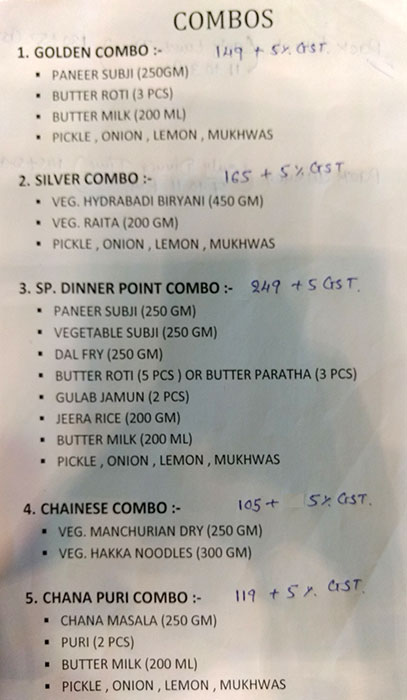 COMBOS
1. GOLDEN COMBO :- 149 + 5% GST.
▪ PANEER SUBJI (250GM)
▪ BUTTER ROTI (3 PCS)
▪ BUTTER MILK (200 ML)
▪ PICKLE , ONION , LEMON , MUKHWAS
2. SILVER COMBO :- 165 + 5% GST
▪ VEG. HYDRABADI BIRYANI (450 GM)
▪ VEG. RAITA (200 GM)
▪ PICKLE , ONION , LEMON , MUKHWAS
3. SP. DINNER POINT COMBO :- 249 + 5 GST.
▪ PANEER SUBJI (250 GM)
▪ VEGETABLE SUBJI (250 GM)
▪ DAL FRY (250 GM)
▪ BUTTER ROTI (5 PCS ) OR BUTTER PARATHA (3 PCS)
▪ GULAB JAMUN (2 PCS)
▪ JEERA RICE (200 GM)
▪ BUTTER MILK (200 ML)
▪ PICKLE , ONION , LEMON , MUKHWAS
4. CHAINESE COMBO :- 105 + 5% GST.
▪ VEG. MANCHURIAN DRY (250 GM)
▪ VEG. HAKKA NOODLES (300 GM)
5. CHANA PURI COMBO :- 119 + 5 %. GST.
▪ CHANA MASALA (250 GM)
▪ PURI (2 PCS)
▪ BUTTER MILK (200 ML)
▪ PICKLE , ONION , LEMON , MUKHWAS